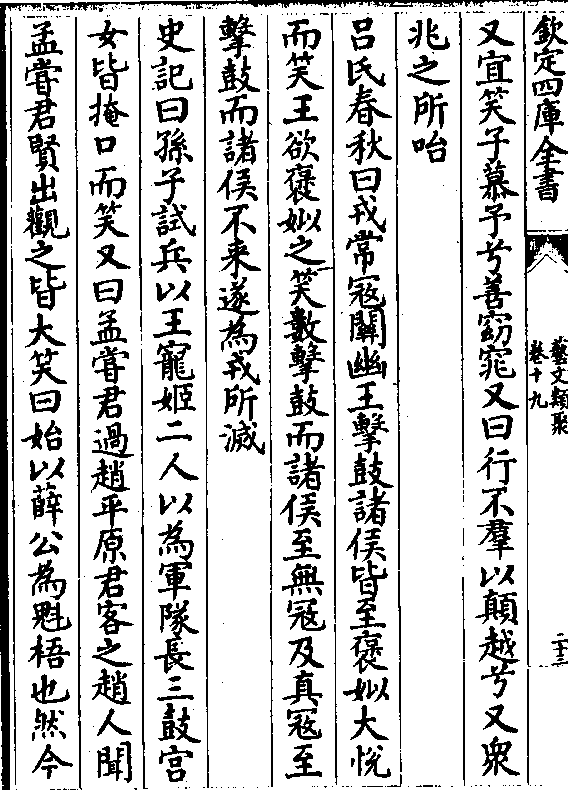 欽定四庫全書
藝文類聚
卷十九
二十三
又宜笑子慕予兮善窈窕又曰行不羣以顛越兮又衆
兆之所咍
吕氏春秋曰戎常寇關幽王擊鼓諸侯皆至褒姒大悦
而笑王欲褒姒之笑數擊鼓而諸侯至無冦及真冦至
擊鼓而諸侯不来遂為戎所滅
史記曰孫子試兵以王寵姬二人以為軍隊長三鼓宫
女皆掩口而笑又曰孟嘗君過趙平原君客之趙人聞
孟嘗君賢出觀之皆大笑曰始以薛公為魁梧也然今